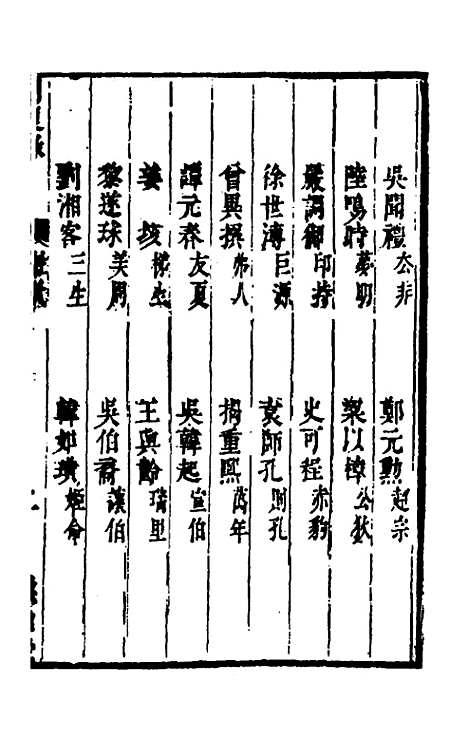 吳聞禮 公非 鄭元勲 超宗
陸鳴時 夢明 梁以樟 公狄
嚴調御 印持 史可程 赤豹
徐世溥 巨源 袁師孔 則孔
曾異撰 弗人 揭重熙 萬年
譚元春 友夏 吳韓起 宣伯
姜垓 如須 王與齡 瑞里
黎遂球 美周 吳伯裔 讓伯
劉湘客 三生 韓如璜 姬命